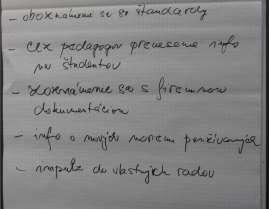 - oboznámenie sa so štandardy
- cez pedagógov prenesenie info
na študentov
- zoznámenie sa s firemnou
dokumentáciou
- info o nových
- impulz do vlastných radov